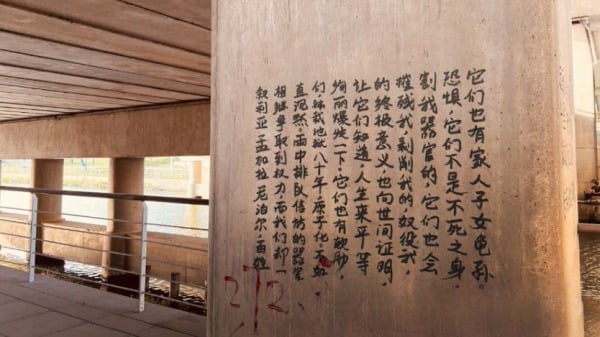 叙利亚,孟加拉,尼泊尔,
相继争取到权力,而我们却一
直沉默,中排队的器
们,我地狱八十年,原子化不如
绚丽爆燃一下,它们也有软肋,
让它们知道,人生来平等
的终极意义,也向世间证明,
摧残我,剥削我的奴役我,
割我器官的,它们也会
恐惧,它们不是不死之身,
它们也有家人子女龟孙。
272.